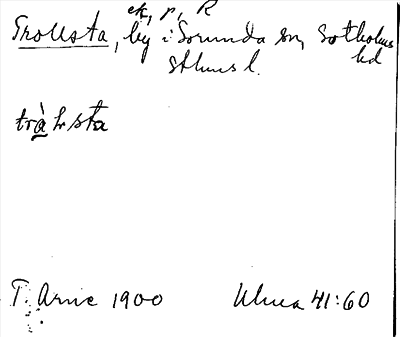 ek, p, R
Trollsta, by i Sorunda sn, Sotholms
hd
sthms l.
tràlsta
T. Arne 1900 Uhrea 41:60